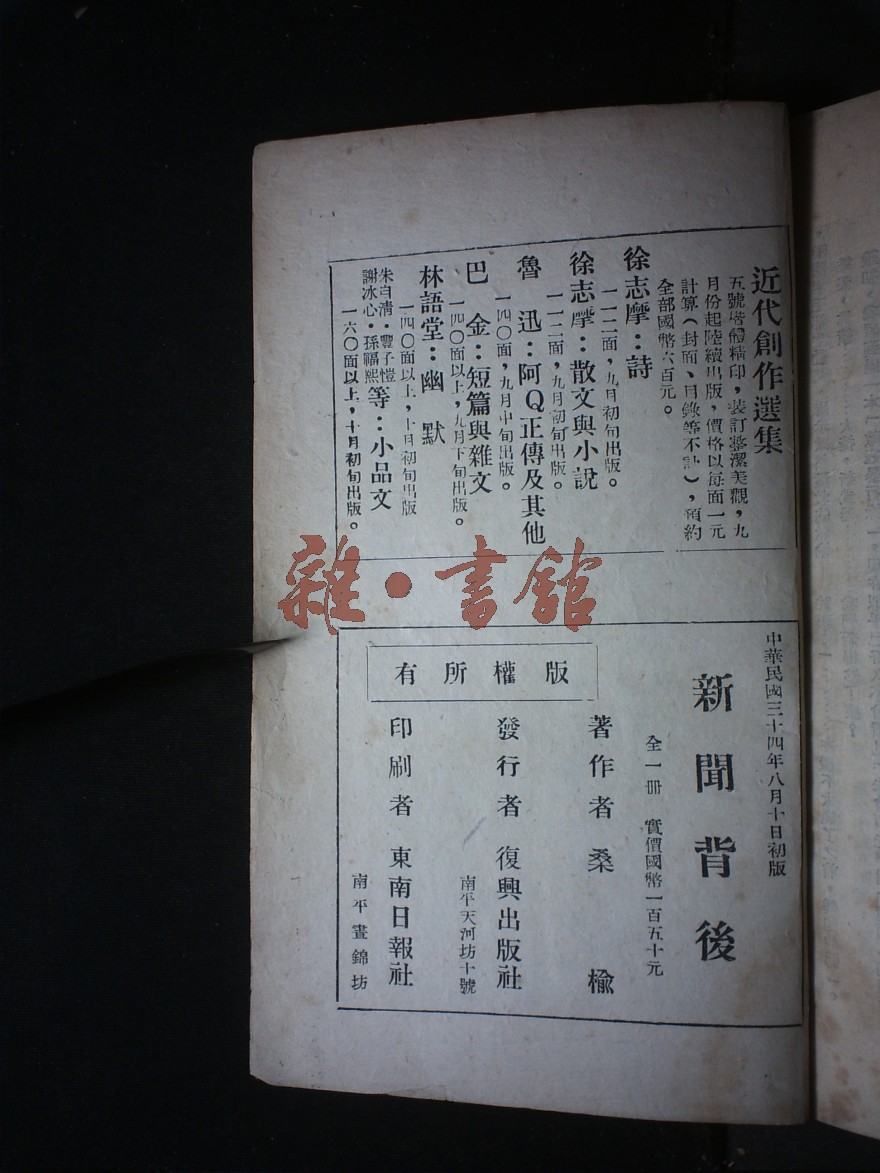 近代創作選集
五號楷體精印，裝訂整潔美觀，九
月份起陸續出版，價格以每面一元
計算（封面、目錄等不計），預約
全部國幣六百元。
徐志摩：詩
一一二面，九月初旬出版。
徐志摩：散文與小說
一一二面，九月初旬出版。
魯　迅：阿Q正傳及其他
一四〇面，九月中旬出版。
巴　金：短篇與雜文
一四〇面以上，九月下旬出版。
林語堂：幽　默
一四〇面以上，十月初旬出版
朱自清・豐子愷
謝冰心・孫福熙等：小品文
一六〇面以上，十月初旬出版。
雜・書館
中華民國三十四年八月十日初版
新聞背後
全一冊　實價國幣一百五十元
版權所有
著作者　桑　榆
發行者　復興出版社
南平天河坊十號
印刷者　東南日報社
南平晝錦坊